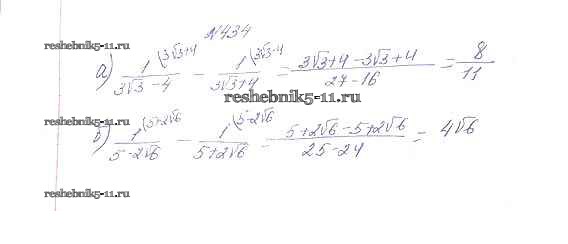 №434
reshebnik5-11.ru
а) 1(3√3+4 / 3√3 - 4 - 1(3√3-4 / 3√3+4 = 3√3+4 - 3√3+4 / 27-16 = 8 / 11
reshebnik5-11.ru
reshebnik5-11.ru
б) 1(5+2√6 / 5-2√6 - 1(5-2√6 / 5+2√6 = 5+2√6 - 5+2√6 / 25-24 = 4√6
reshebnik5-11.ru
reshebnik5-11.ru